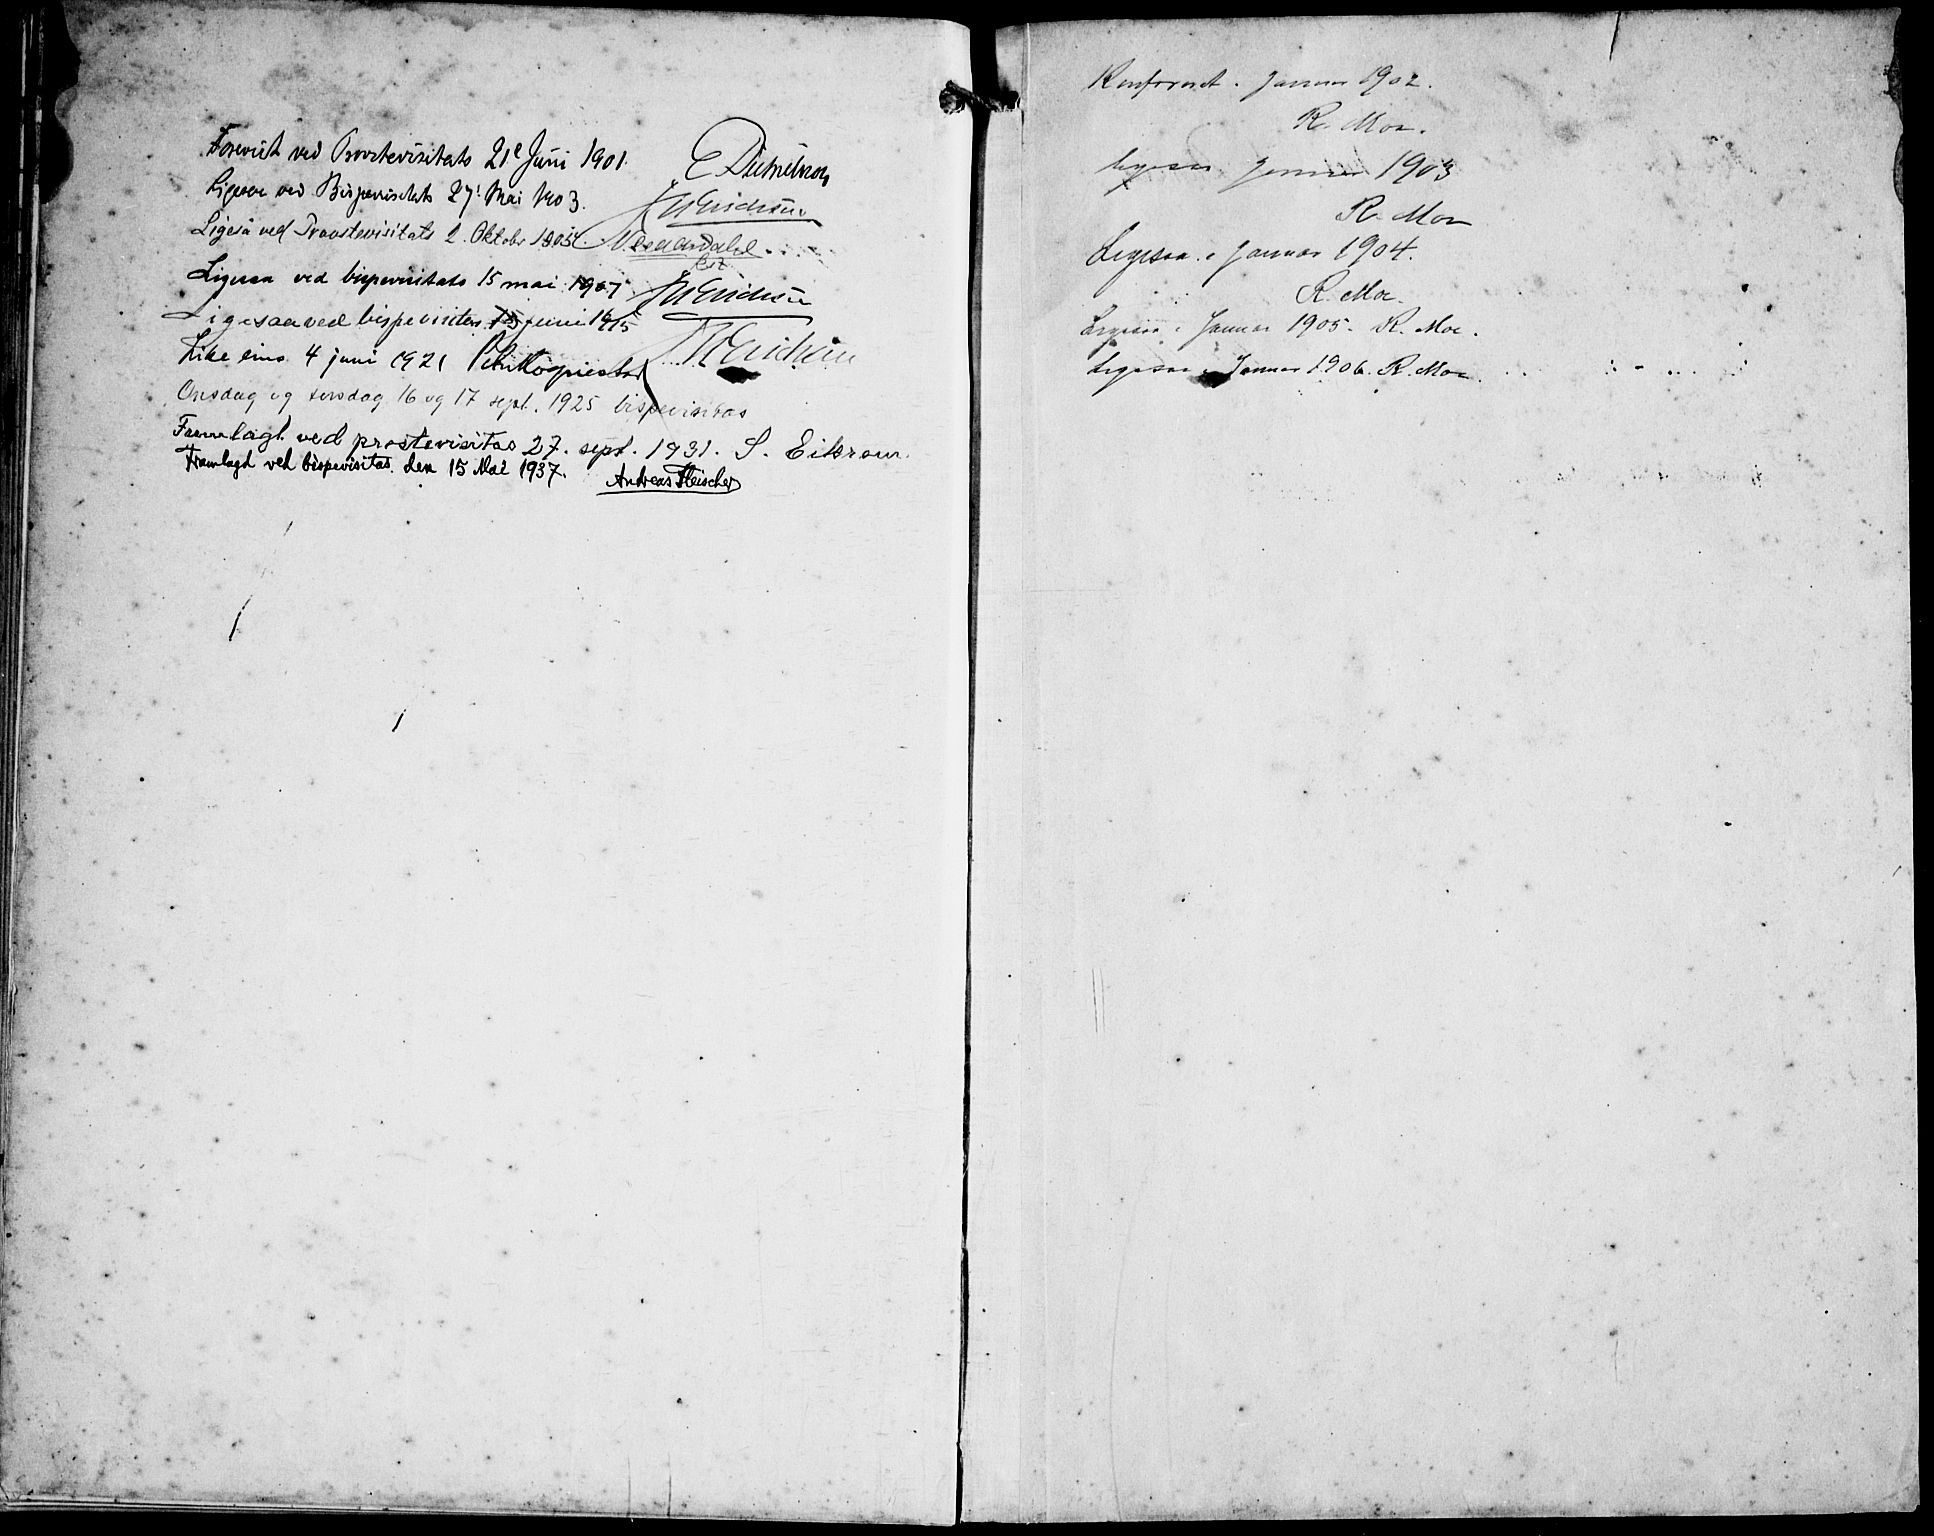 Forevist ved Provstevisitats 21e Juni 1901.
Ligesaa ved Bispevisitats 27! Mai 1903.
Ligeså ved Provstevisitats 2. Oktobr 1905.
Ligesaa ved bispevisitats 15 mai 1907
Ligesaa ved bispevisitas 15 juni 1915
Like eins 4 juni 1921
Onsdag og torsdag 16 og 17 sept. 1925 bispevisitas
Framlagt ved prostevisitas 27. sept. 1931. S. Eikrem.
Framlagt ved bispevisitas den 15 Mai 1937. Andreas Fleischer
Konfereret. Januar 1902.
R. Moe.
Ligesaa Januar 1903
R. Moe
Ligesaa i Januar 1904.
R. Moe.
Ligesaa i Januar 1905. R. Moe.
Ligesaa i Januar 1906. R. Moe.